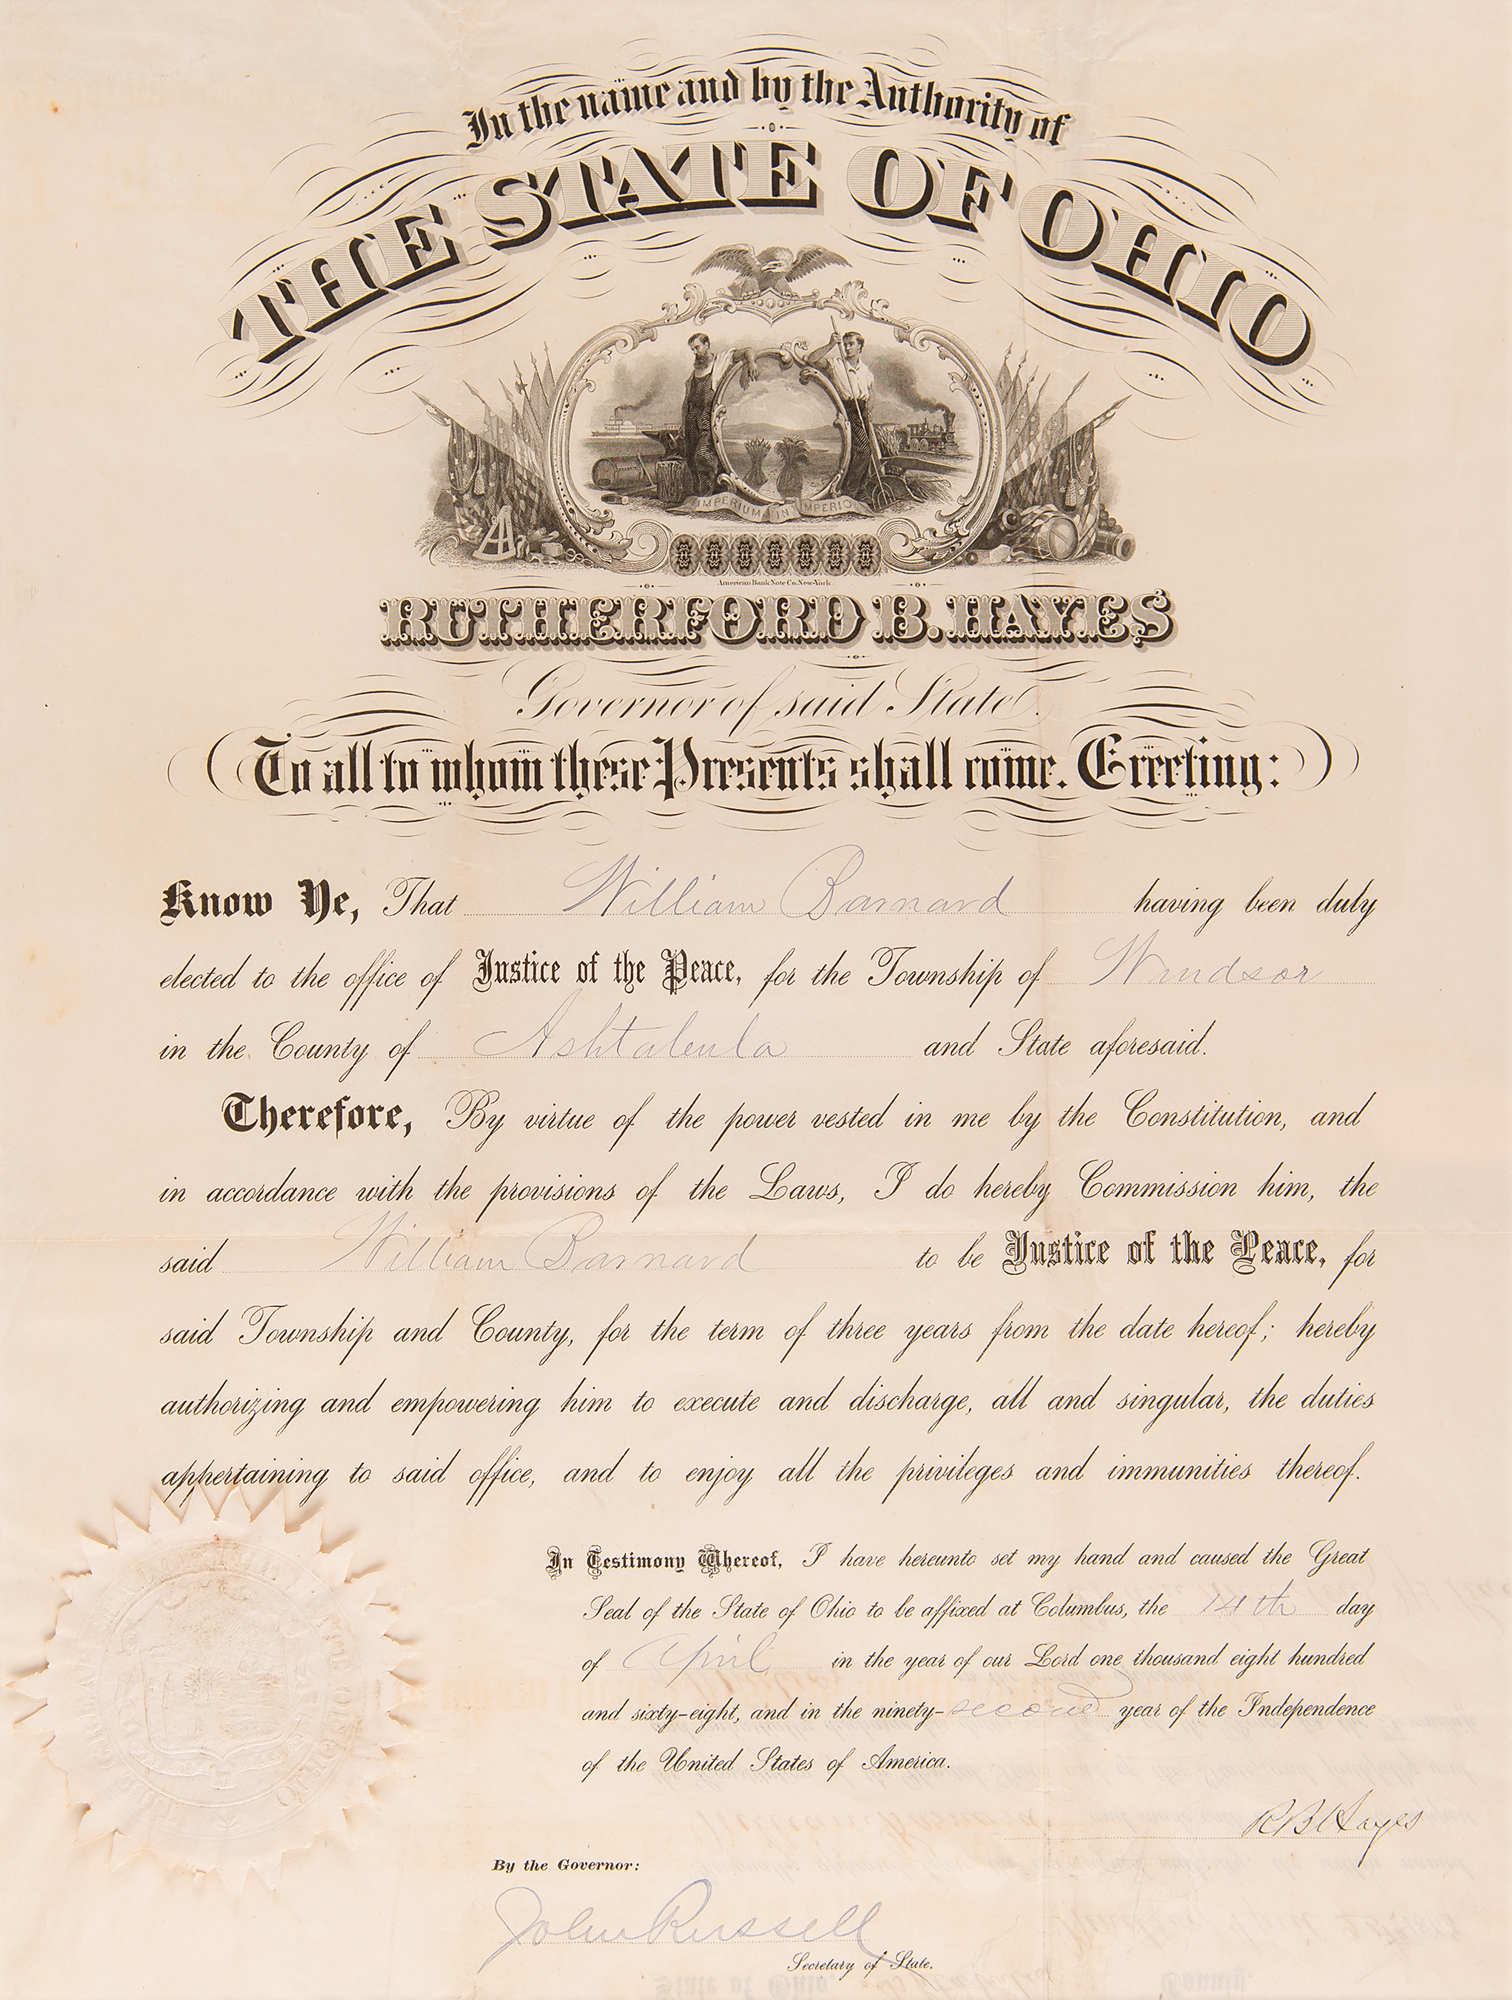 In the name and by the Authority of
THE STATE OF OHIO
IMPERIUM IN IMPERIO
American Bank Note Co. New-York
RUTHERFORD B. HAYES
Governor of said State.
To all to whom these Presents shall come. Greeting:
Know Ye, That William Barnard having been duly
elected to the office of Justice of the Peace, for the Township of Windsor
in the County of Ashtabula and State aforesaid.
Therefore, By virtue of the power vested in me by the Constitution, and
in accordance with the provisions of the Laws, I do hereby Commission him, the
said William Barnard to be Justice of the Peace, for
said Township and County, for the term of three years from the date hereof; hereby
authorizing and empowering him to execute and discharge, all and singular, the duties
appertaining to said office, and to enjoy all the privileges and immunities thereof.
In Testimony Whereof, I have hereunto set my hand and caused the Great
Seal of the State of Ohio to be affixed at Columbus, the 14th day
of April in the year of our Lord one thousand eight hundred
and sixty-eight, and in the ninety-second year of the Independence
of the United States of America.
R B Hayes
By the Governor:
John Russell
Secretary of State.